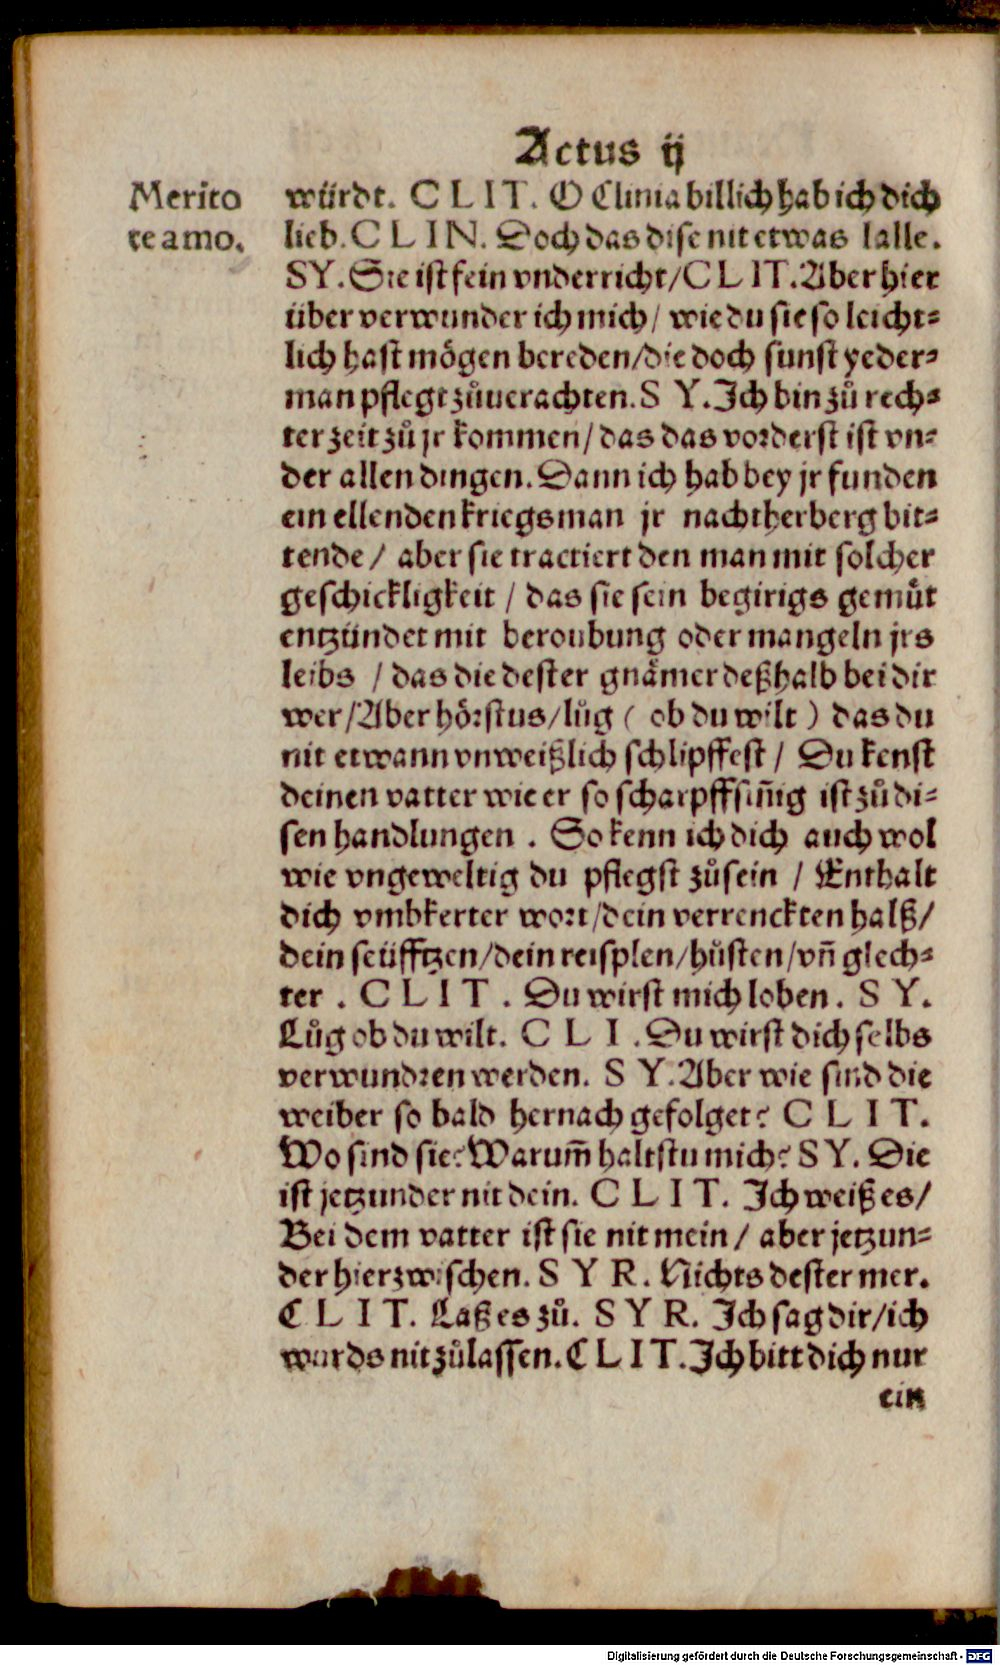 Actus ij
Merito
te amo.
würdt. C L I T. O Clinia billich hab ich dich
lieb. C L I N. Doch das dise nit etwas lalle.
SY. Sie ist fein vnderricht/ C L I T. Aber hier
über verwunder ich mich/ wie du sie so leicht⸗
lich hast mögen bereden/ die doch sunst yeder⸗
man pflegt zůuerachten. S Y. Ich bin zů rech⸗
ter zeit zů jr kommen/ das das vorderst ist vn⸗
der allen dingen. Dann ich hab bey jr funden
ein ellenden kriegsman jr nachtherberg bit⸗
tende/ aber sie tractiert den man mit solcher
geschickligkeit / das sie sein begirigs gemůt
entzündet mit beroubung oder mangeln jrs
leibs / das die dester gnämer deßhalb bei dir
wer/ Aber hörstus/ lůg ( ob du wilt ) das du
nit etwann vnweißlich schlipffest / Du kenst
deinen vatter wie er so scharpffsiñig ist zů di⸗
sen handlungen . So kenn ich dich auch wol
wie vngeweltig du pflegst zůsein / Enthalt
dich vmbkerter wort/ dein verrenckten halß/
dein seüfftzen/ dein reisplen/ hůsten/ vñ glech⸗
ter . C L I T . Du wirst mich loben. S Y.
Lůg ob du wilt. C L I . Du wirst dich selbs
verwundren werden. S Y. Aber wie sind die
weiber so bald hernach gefolget? C L I T.
Wo sind sie? Warum̃ haltstu mich? S Y. Die
ist jetzunder nit dein. C L I T. Ich weiß es/
Bei dem vatter ist sie nit mein / aber jetzun⸗
der hierzwischen. S Y R. Nichts dester mer.
C L I T. Laß es zů. S Y R. Ich sag dir/ ich
wurds nit zůlassen. C L I T. Ich bitt dich nur
ein
Digitalisierung gefördert durch die Deutsche Forschungsgemeinschaft - DFG